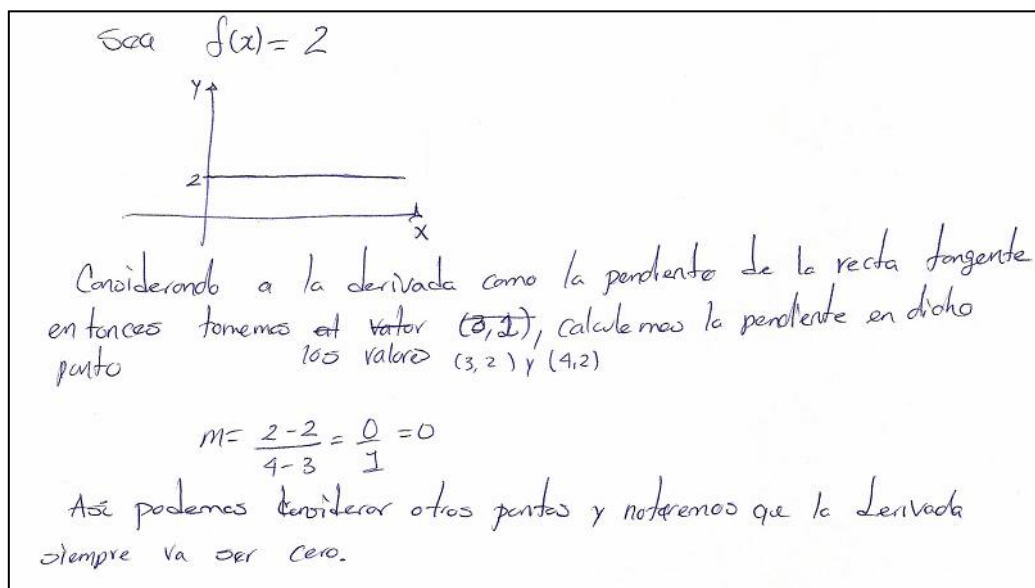 Sea f(x) = 2
Y
2
X
Considerando a la derivada como la pendiente de la recta tangente
entonces tomemos el valor (3,2), calculemos la pendiente en dicho
punto los valores (3,2) y (4,2)
m = 2-2/4-3 = 0/1 = 0
Así podemos considerar otros puntos y notaremos que la derivada
siempre va ser cero.